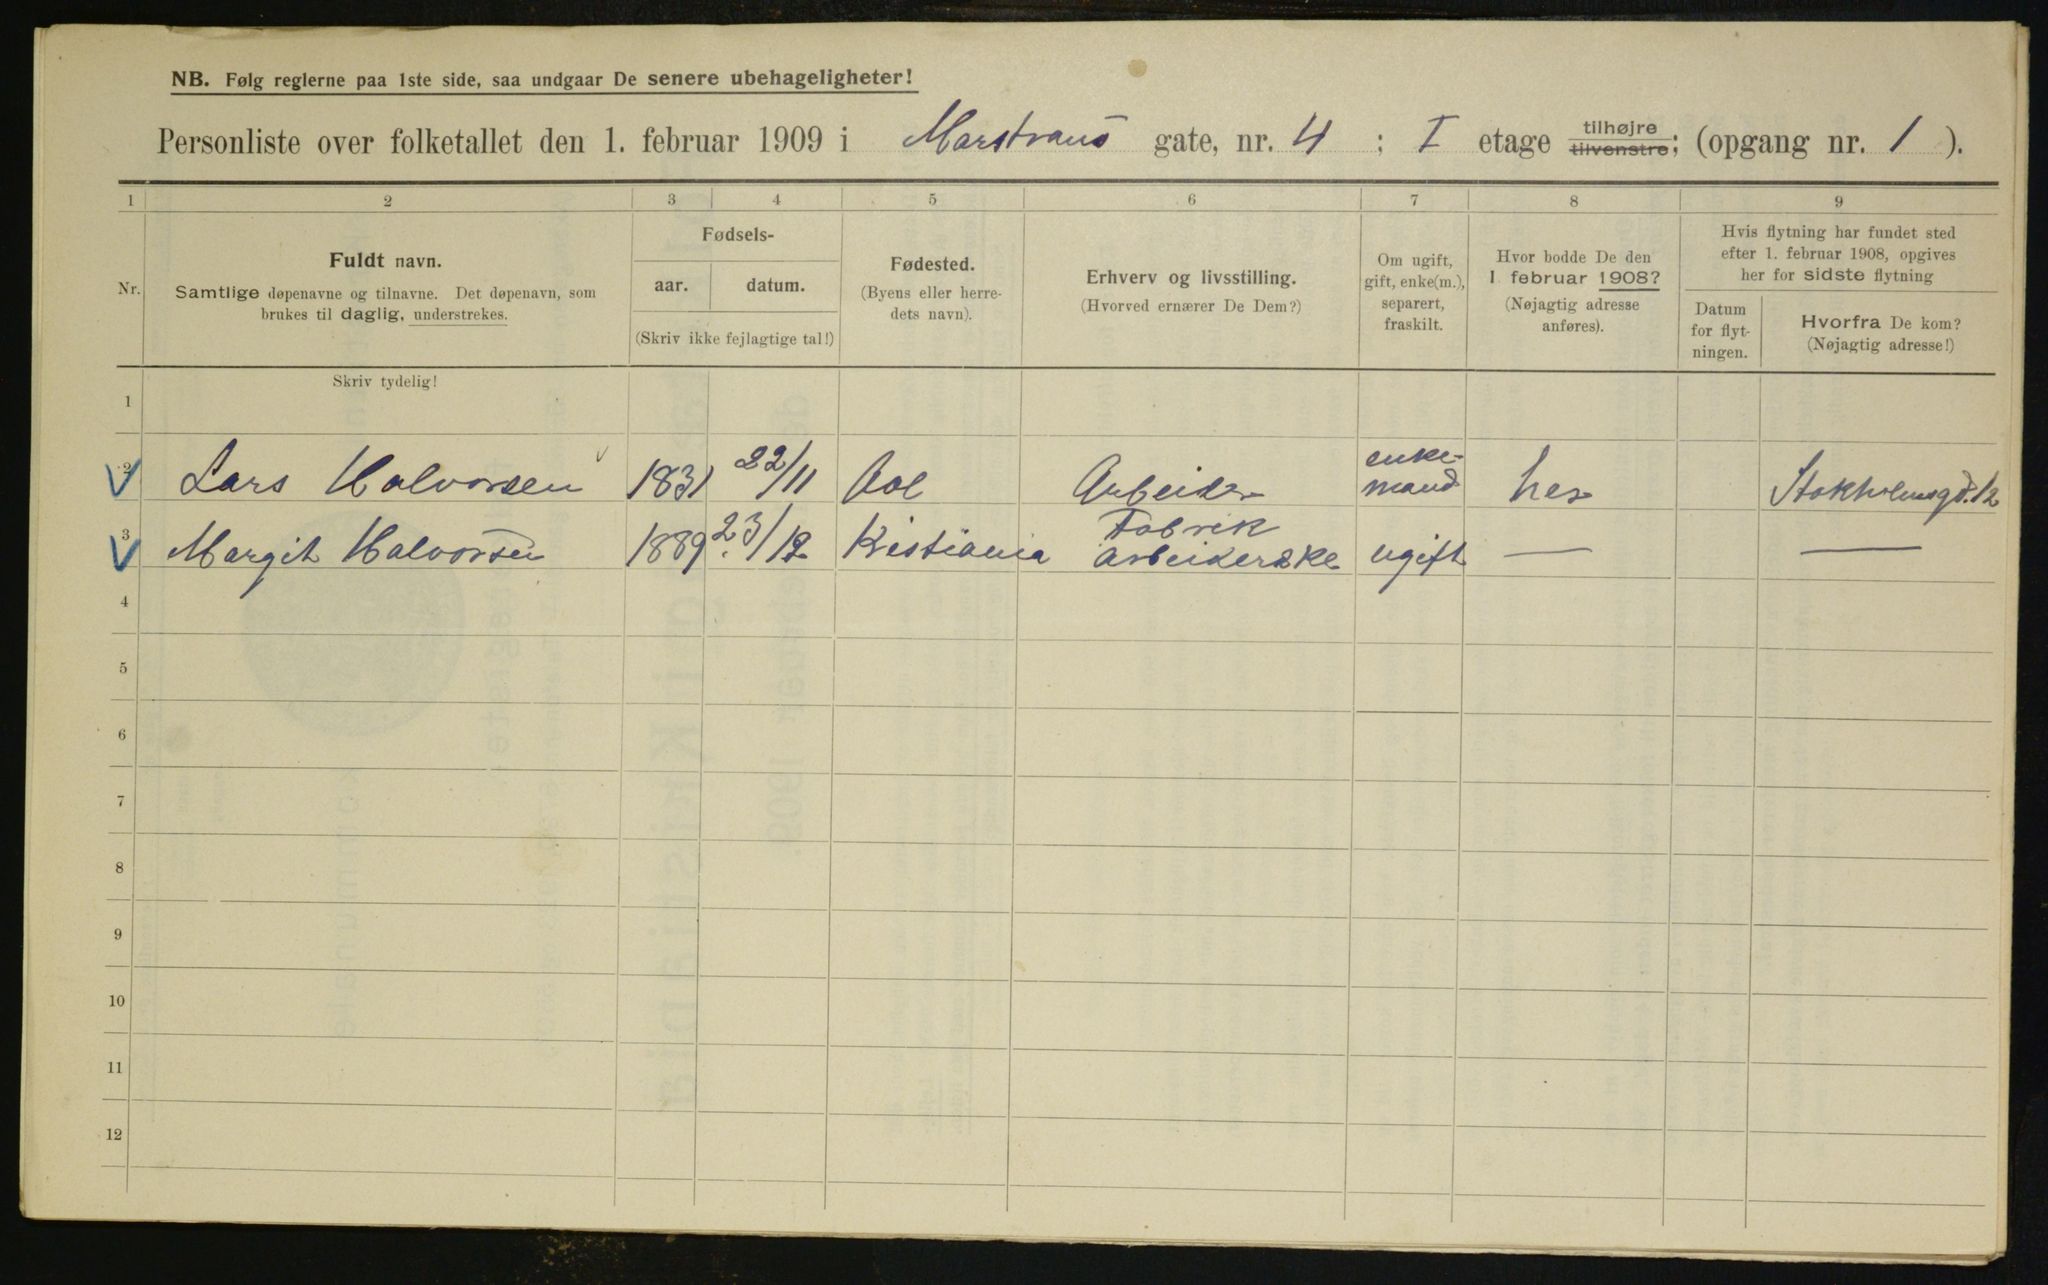 NB. Følg reglerne paa 1ste side, saa undgaar De senere ubehageligheter!
Personliste over folketallet den 1. februar 1909 i Marstrans gate, nr. 4 ; I etage tilhøjre tilvenstre; (opgang nr. 1 ).
1 2 3 4 5 6 7 8 9
Nr.
Fuldt navn.
Samtlige døpenavne og tilnavne. Det døpenavn, som
brukes til daglig, understrekes.
Fødsels-
aar. datum.
(Skriv ikke fejlagtige tal!)
Fødested.
(Byens eller herre-
dets navn).
Erhverv og livsstilling.
(Hvorved ernærer De Dem?)
Om ugift,
gift, enke(m.),
separert,
fraskilt.
Hvor bodde De den
1. februar 1908?
(Nøjagtig adresse
anføres).
Hvis flytning har fundet sted
efter 1. februar 1908, opgives
her for sidste flytning
Datum
for flyt-
ningen.
Hvorfra De kom?
(Nøjagtig adresse!)
Skriv tydelig!
1
2 Lars Halvorsen 1831 22/11 Aol Arbeider enke-
mand her Stokholmsgd. 12
3 Margit Halvorsen 1889 23/12 Kristiania Fabrik
arbeiderske ugift — —
4
5
6
7
8
9
10
11
12